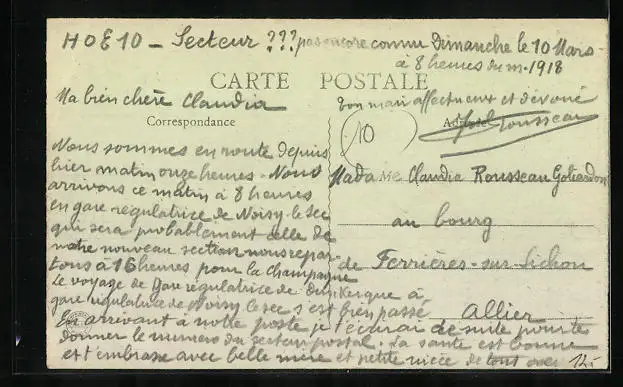 HOE 10 - Secteur ??? pas encore connu Dimanche le 10 Mars
à 8 heures du m. 1918
CARTE POSTALE
Ma bien chère Claudia
ton mari affectueux et dévoué
Correspondance
Adresse
Rousseau
10
Nous sommes en route depuis
hier matin onze heures. Nous
arrivons ce matin à 8 heures
en gare régulatrice de Noisy-le-Sec
qui sera probablement celle de
notre nouveau section nous repar-
tons à 16 heures pour la champagne
Le voyage de Gare régulatrice de Dunkerque à
gare régulatrice de Noisy le sec s'est bien passé
En arrivant à notre poste je t'écrirai de suite pour te
donner le numéro du secteur postal. La santé est bonne
et t'embrasse avec belle mère et petite nièce de tout
Madame Claudia Rousseau Goliardon
au bourg
de Ferrières-sur-Sichon
Allier
12